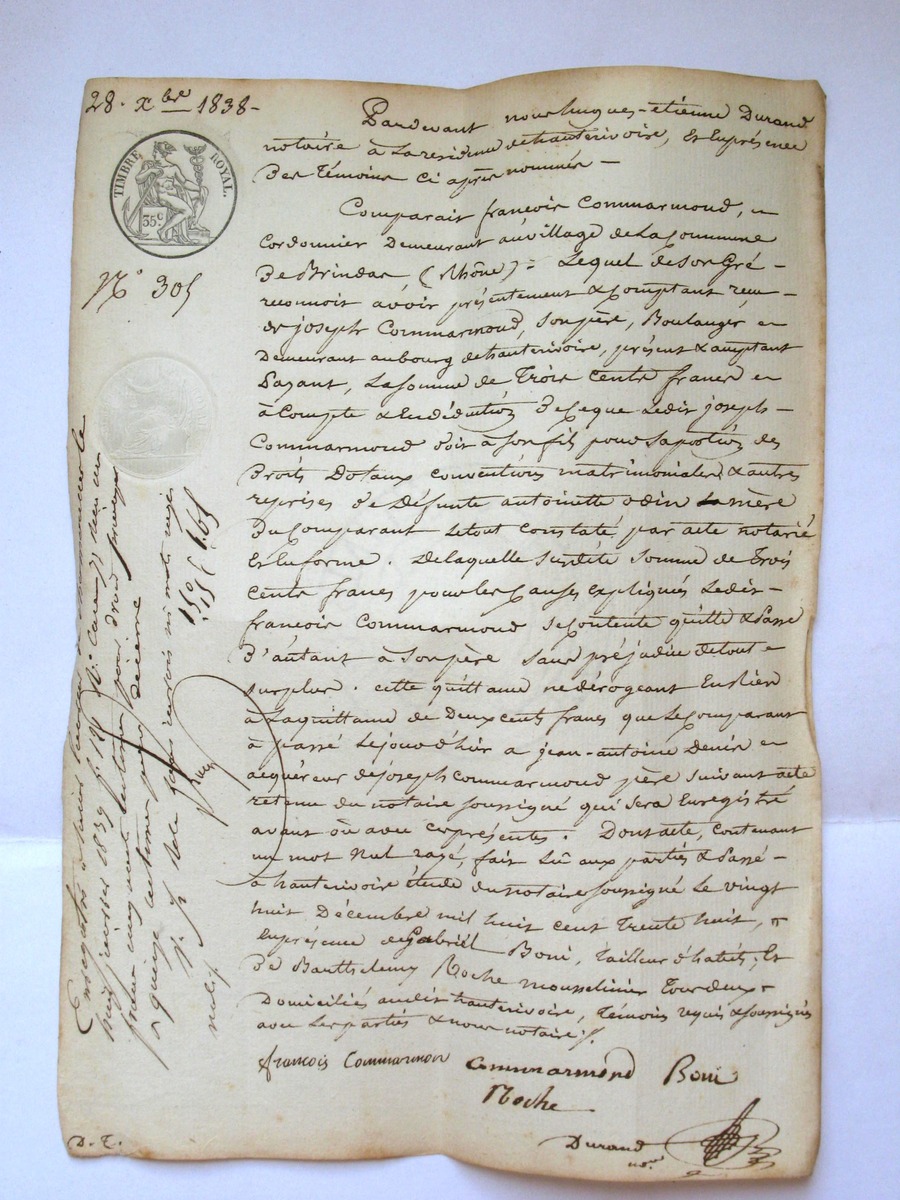 28. Xbre 1838 -
TIMBRE ROYAL.
35 c
N° 305
Pardevant nous hugues-étienne Durand
notaire à La résidence de hauterivoire, Et En présence
Des Témoins Ci après nommés -
Comparait françois Commarmond,
Cordonnier Demeurant au village de La Commune
De Brindas (Rhône) = Lequel de Son Gré -
reconnoit avoir présentement & Comptant reçu -
de joseph Commarmond, Son père, Boulanger
Demeurant au bourg de hauterivoire, présent & acceptant
Payant, La Somme de Trois Cents francs
à Compte & En déduction De Ce que Ledit joseph -
Commarmond doit à Son fils pour Sa portion des
Droits Dotaux conventions matrimoniales & autres
reprises De Défunte antoinette odin La mère
Du Comparant Le tout Constaté par acte notarié
En forme. De laquelle Susdite Somme de Trois
Cents francs pour les Causes Expliqués Ledit -
françois Commarmond Se Contente quitte & Passe
D'autant à Son père Sans préjudice de tout
Surplus. cette quittance ne dérogeant En Rien
à La quittance de Deux Cents francs que Le Comparant
à passé Le jour d'hier a jean-antoine Denis
acquéreur de joseph Commarmond père Suivant acte
retenu du notaire Soussigné qui Sera Enregistré
avant ou avec Ces présentes. Dont acte, Contenant
un mot Nul rayé, fait Lû aux parties & Passé -
à hauterivoire étude du notaire Soussigné Le vingt
huit Décembre mil huit Cent Trente huit,
En présence de Gabriel Boni, Tailleur d'habits, Et
De Barthelemy Roche mousselinier Tous Deux
Domiciliés audit hauterivoire, Témoins requis & Soussignés
avec Les parties & nous notaire /.
françois Commarmon Commarmond Boni
Roche
Durand
nore
D. T.
Enregistré à
neuf janvier 1839 f°
reçu un
franc cinquante centimes pour droit principal
& quinze centimes pour décime
1,50
,15
1,65